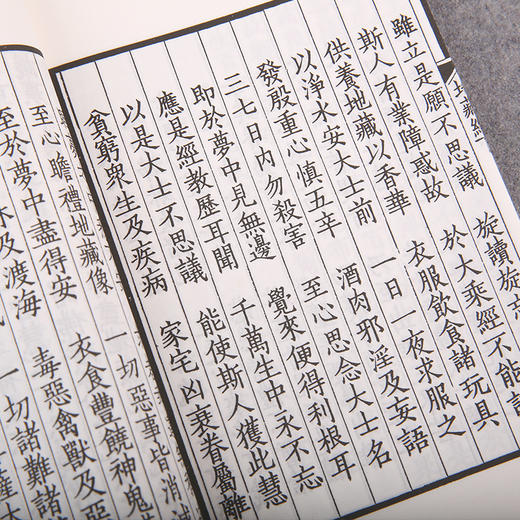 地藏經
雖立是願不思議 旋讀旋忘
斯人有業障惑故 於大乘經不能記
供養地藏以香華 衣服飲食諸玩具
以淨水安大士前 一日一夜求服之
發殷重心慎五辛 酒肉邪淫及妄語
三七日內勿殺害 至心思念大士名
即於夢中見無邊 覺來便得利根耳
應是經教歷耳聞 千萬生中永不忘
以是大士不思議 能使斯人獲此慧
貧窮眾生及疾病 家宅凶衰眷屬離
至心瞻禮地藏像 一切惡事皆消
至於夢中盡得安 衣食豐饒神鬼
林及渡海 毒惡禽獸及惡
一切諸難諸